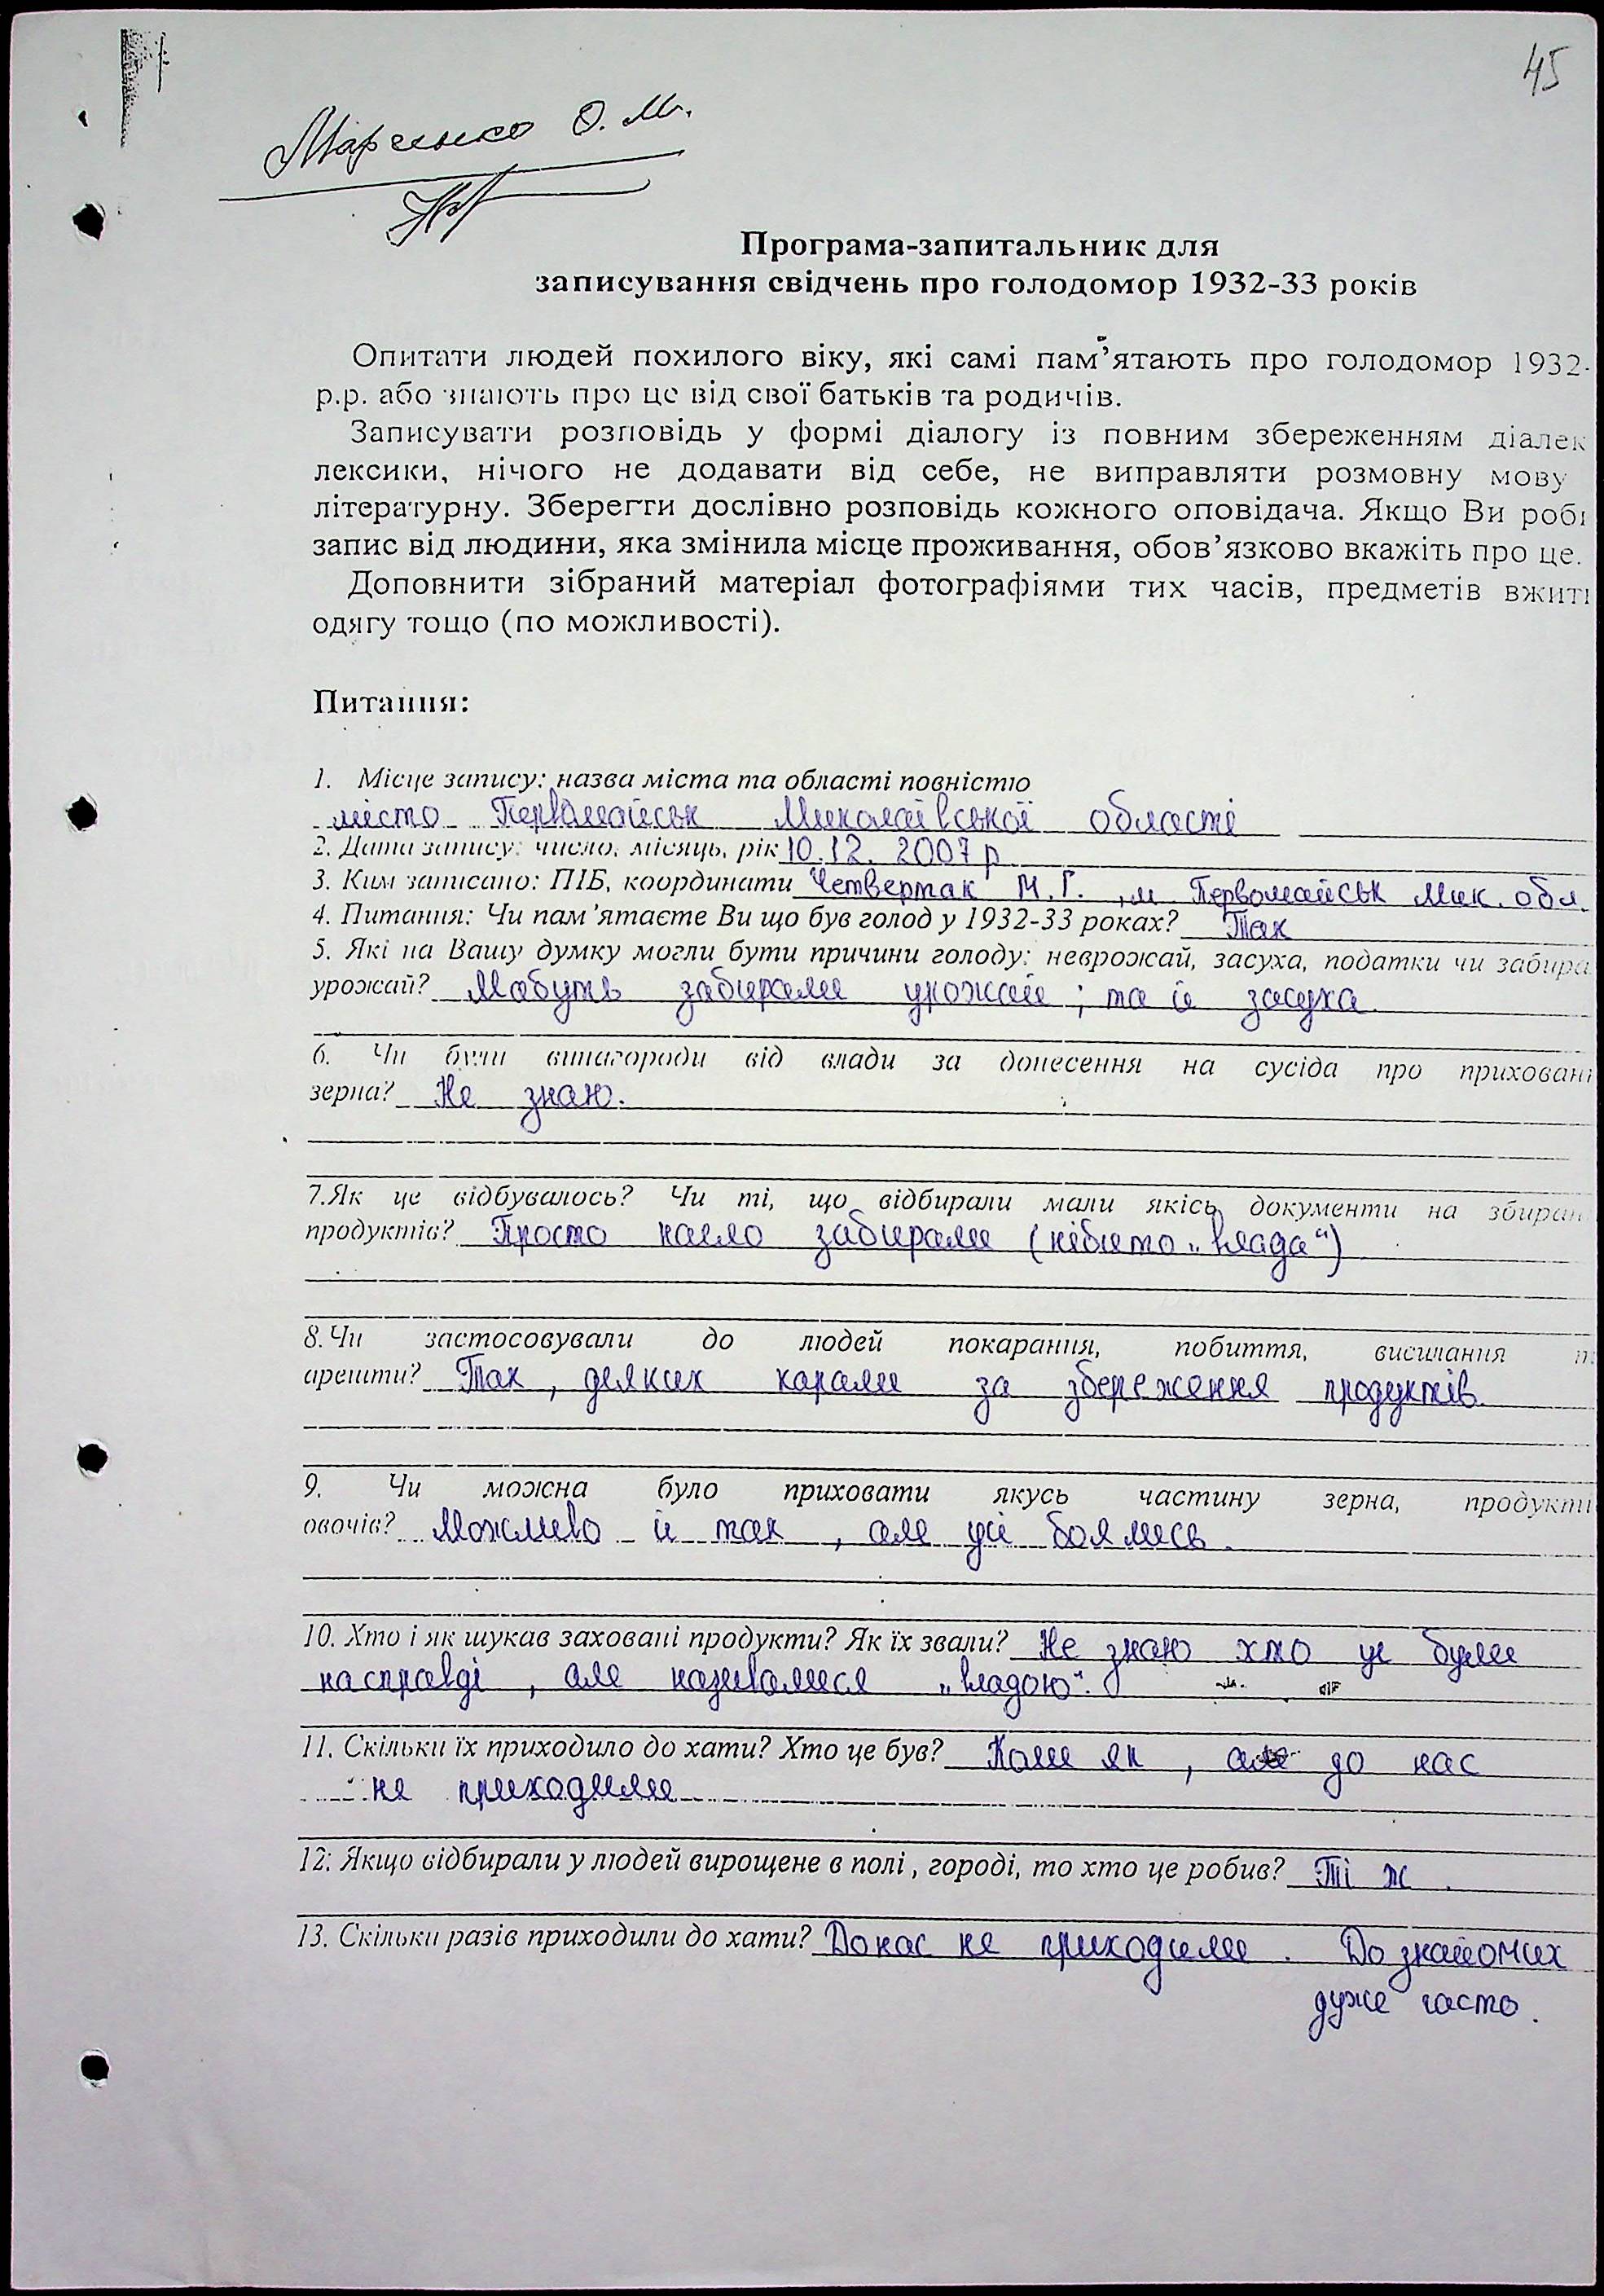 45
Марченко О. М.
Програма-запитальник для
записування свідчень про голодомор 1932-33 років
Опитати людей похилого віку, які самі пам’ятають про голодомор 1932-
р.р. або знають про це від свої батьків та родичів.
Записувати розповідь у формі діалогу із повним збереженням діалек
лексики, нічого не додавати від себе, не виправляти розмовну мову
літературну. Зберегти дослівно розповідь кожного оповідача. Якщо Ви робі
запис від людини, яка змінила місце проживання, обов’язково вкажіть про це.
Доповнити зібраний матеріал фотографіями тих часів, предметів вжит
одягу тощо (по можливості).
Питання:
1. Місце запису: назва міста та області повністю
місто Первомайськ Миколаївської області
2. Дата запису: число, місяць, рік 10.12. 2007 р
3. Ким записано: ПІБ, координати Четвертак М.Г. , м Первомайськ Мик. обл.
4. Питання: Чи пам’ятаєте Ви що був голод у 1932-33 роках? Так
5. Які на Вашу думку могли бути причини голоду: неврожай, засуха, податки чи забира
урожай? Мабуть забирали урожай ; та й засуха.
6. Чи були винагороди від влади за донесення на сусіда про приховані
зерна? Не знаю.
7.Як це відбувалось? Чи ті, що відбирали мали якісь документи на збиран
продуктів? Просто нагло забирали (нібито „влада“)
8.Чи застосовували до людей покарання, побиття, висилання
арешти? Так , деяких карали за збереження продуктів.
9. Чи можна було приховати якусь частину зерна, продукти
овочів? Можливо й так , але усі боялись.
10. Хто і як шукав заховані продукти? Як їх звали? Не знаю хто це були
насправді , але називалися „владою“.
11. Скільки їх приходило до хати? Хто це був? Коли як , але до нас
не приходили
12. Якщо відбирали у людей вирощене в полі, городі, то хто це робив? Ті ж .
13. Скільки разів приходили до хати? До нас не приходили . До знайомих
дуже часто.